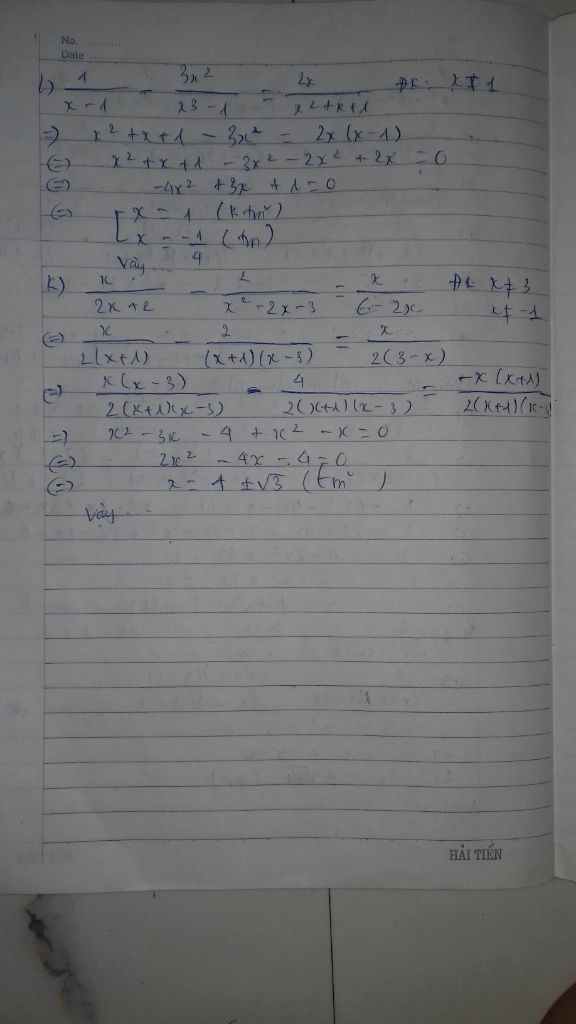 No. ............
Date ............
l) 1/(x-1) - 3x²/(x3-1) = 2x/(x²+x+1) ĐK: x ≠ 1
=> x²+x+1 - 3x² = 2x(x-1)
<=> x²+x+1 - 3x² - 2x² + 2x = 0
<=> -4x² + 3x + 1 = 0
<=> [ x = 1 (k tm)
[ x = -1/4 (tm)
Vậy ...
k) x/(2x+2) - 2/(x²-2x-3) = x/(6-2x) ĐK x ≠ 3
x ≠ -1
<=> x/2(x+1) - 2/(x+1)(x-3) = x/2(3-x)
<=> x(x-3)/2(x+1)(x-3) - 4/2(x+1)(x-3) = -x(x+1)/2(x+1)(x-3)
=> x² - 3x - 4 + x² - x = 0
<=> 2x² - 4x - 4 = 0
<=> x = 1 ± √3 (tm)
Vậy ...
HẢI TIẾN